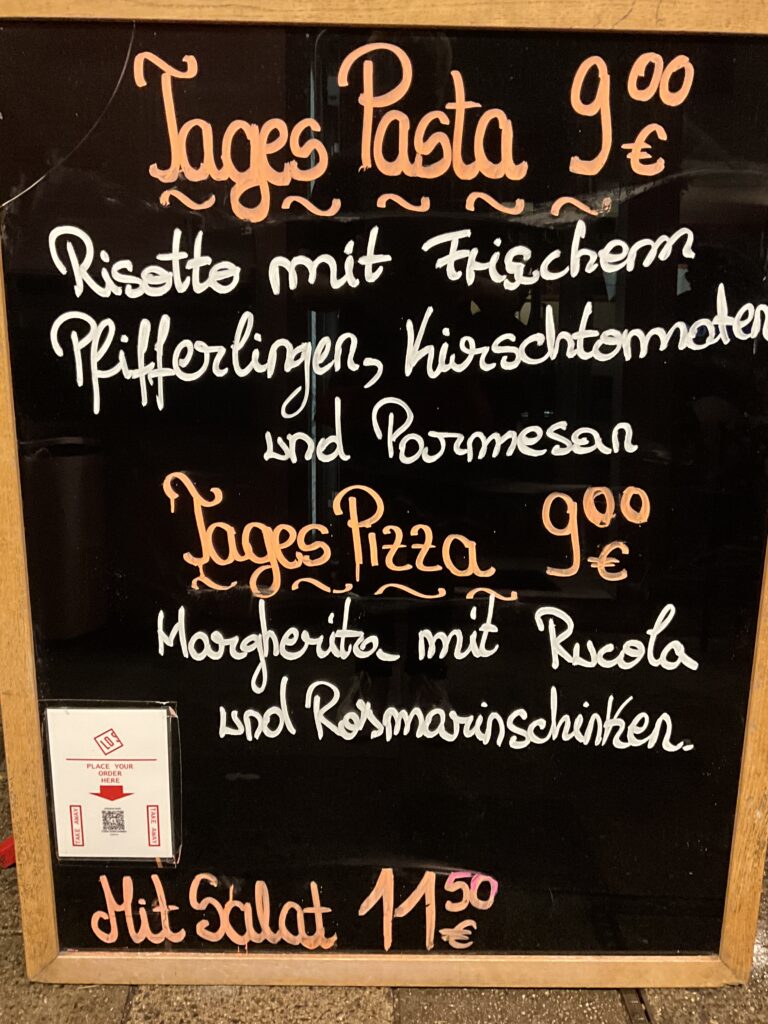 Tages Pasta 9⁰⁰ €
Risotto mit Frischem
Pfifferlingen, Kirschtomaten
und Parmesan
Tages Pizza 9⁰⁰ €
Margherita mit Rucola
und Rosmarinschinken.
LOS
PLACE YOUR
ORDER
HERE
TAKE AWAY
TAKE AWAY
Mit Salat 11⁵⁰ €